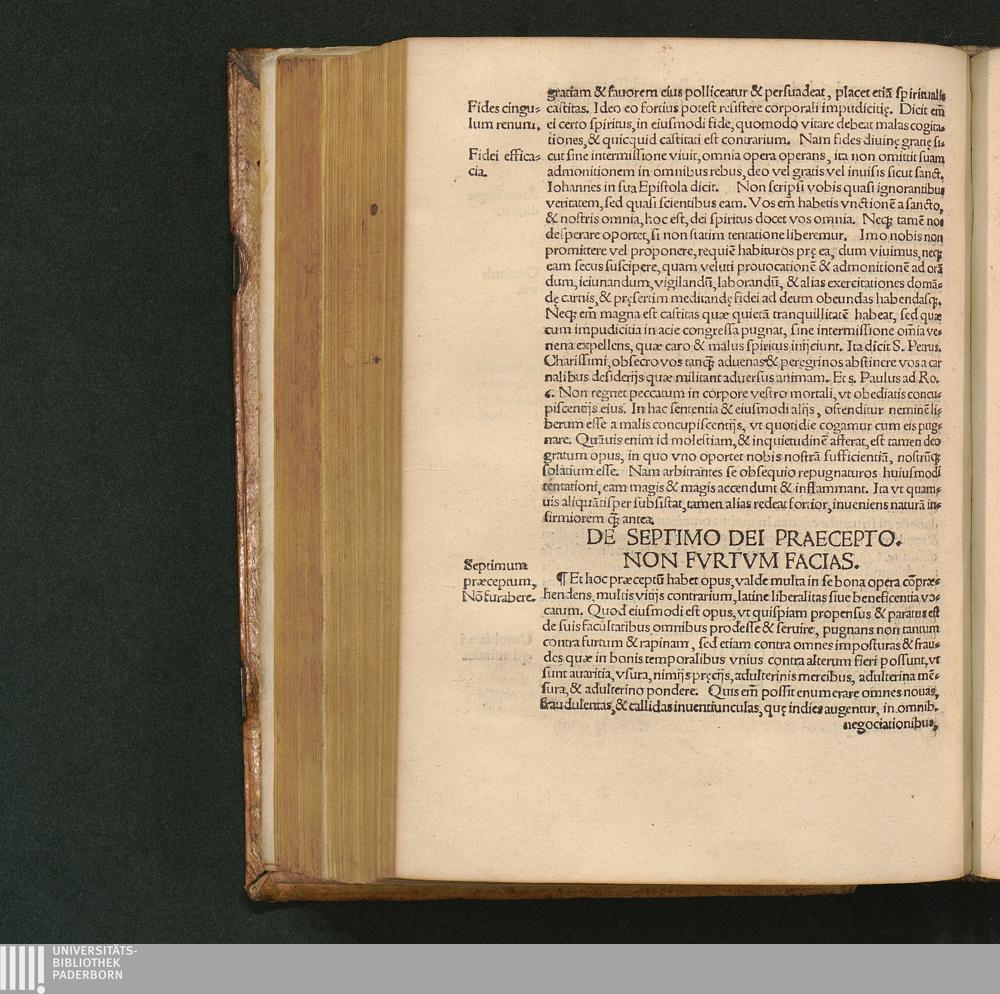 gratiam & fauorem eius polliceatur & persuadeat, placet etiã spiritualis
Fides cingu-
lum renum.
castitas. Ideo eo fortius potest resistere corporali impudicitię. Dicit em̃
ei certo spiritus, in eiusmodi fide, quomodo vitare debeat malas cogita-
tiones, & quicquid castitati est contrarium. Nam fides divinę gratię si-
Fidei effica-
cia.
cut sine intermissione viuit, omnia opera operans, ita non omittit suam
admonitionem in omnibus rebus, deo vel gratis vel inuisis sicut sanct.
Iohannes in sua Epistola dicit. Non scripsi vobis quasi ignorantibus
veritatem, sed quasi scientibus eam. Vos em̃ habetis vnctionẽ a sancto,
& nostis omnia, hoc est, dei spiritus docet vos omnia. Neqꝫ tamẽ nos
desperare oportet, si non statim tentatione liberemur. Imo nobis non
promittere vel proponere, requiẽ habituros prę ea, dum viuimus, neqꝫ
eam secus suscipere, quam veluti prouocationẽ & admonitionẽ ad orã
dum, ieiunandum, vigilandũ, laborandũ, & alias exercitationes domã-
dę carnis, & pręsertim meditandę fidei ad deum obeundas habendasqꝫ.
Neqꝫ em̃ magna est castitas quæ quietã tranquillitatẽ habeat, sed quæ
cum impudicitia in acie congressa pugnat, sine intermissione om̃ia ve-
nena expellens, quæ caro & malus spiritus inijciunt. Ita dicit S. Petrus.
Charissimi, obsecro vos tanqꝫ̃ aduenas & peregrinos abstinere vos a car
nalibus desiderijs quæ militant aduersus animam. Et s. Paulus ad Ro.
6. Non regnet peccatum in corpore vestro mortali, vt obediatis concu-
piscentijs eius. In hac sententia & eiusmodi alijs, ostenditur neminẽ li-
berum esse a malis concupiscentijs, vt quotidie cogamur cum eis pug-
nare. Quãuis enim id molestiam, & inquietudinẽ afferat, est tamen deo
gratum opus, in quo vno oportet nobis nostrã sufficientiã, nostrũqꝫ
solatium esse. Nam arbitrantes se obsequio repugnaturos huiusmodi
tentationi, eam magis & magis accendunt & inflammant. Ita vt quam-
uis aliquãtisper subsistat, tamen alias redeat fortior, inueniens naturã in-
firmiorem qꝫ̃ antea.
DE SEPTIMO DEI PRAECEPTO.
NON FVRTVM FACIAS.
Septimum
præceptum,
Nõ furabere.
¶ Et hoc præceptũ habet opus, valde multa in se bona opera cõpræ-
hendens, multis vitijs contrarium, latine liberalitas siue beneficentia vo-
catum. Quod eiusmodi est opus, vt quispiam propensus & paratus est
de suis facultatibus omnibus prodesse & seruire, pugnans non tantum
contra furtum & rapinam, sed etiam contra omnes imposturas & frau-
des quæ in bonis temporalibus vnius contra alterum fieri possunt, vt
sunt auaritia, vsura, nimijs pręcijs, adulterinis mercibus, adulterina mẽ-
sura, & adulterino pondere. Quis em̃ possit enumerare omnes nouas,
fraudulentas, & callidas inuentiunculas, quę indies augentur, in omnib.
negociationibus,
UNIVERSITÄTS-
BIBLIOTHEK
PADERBORN